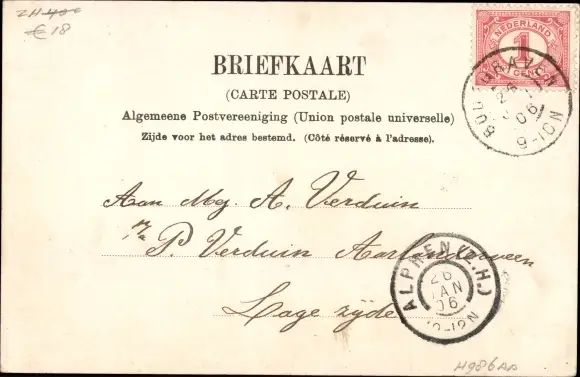 ZH 400
€ 18
NEDERLAND
1
CENT
BODEGRAVEN
26
06
9-10N
BRIEFKAART
(CARTE POSTALE)
Algemeene Postvereeniging (Union postale universelle)
Zijde voor het adres bestemd. (Côté réservé à l'adresse).
Aan Mej. A. Verduin
P. Verduin Aarlanderveen
Lage zijde
ALPHEN (Z.H.)
26
JAN
06
10-12N
H986AA